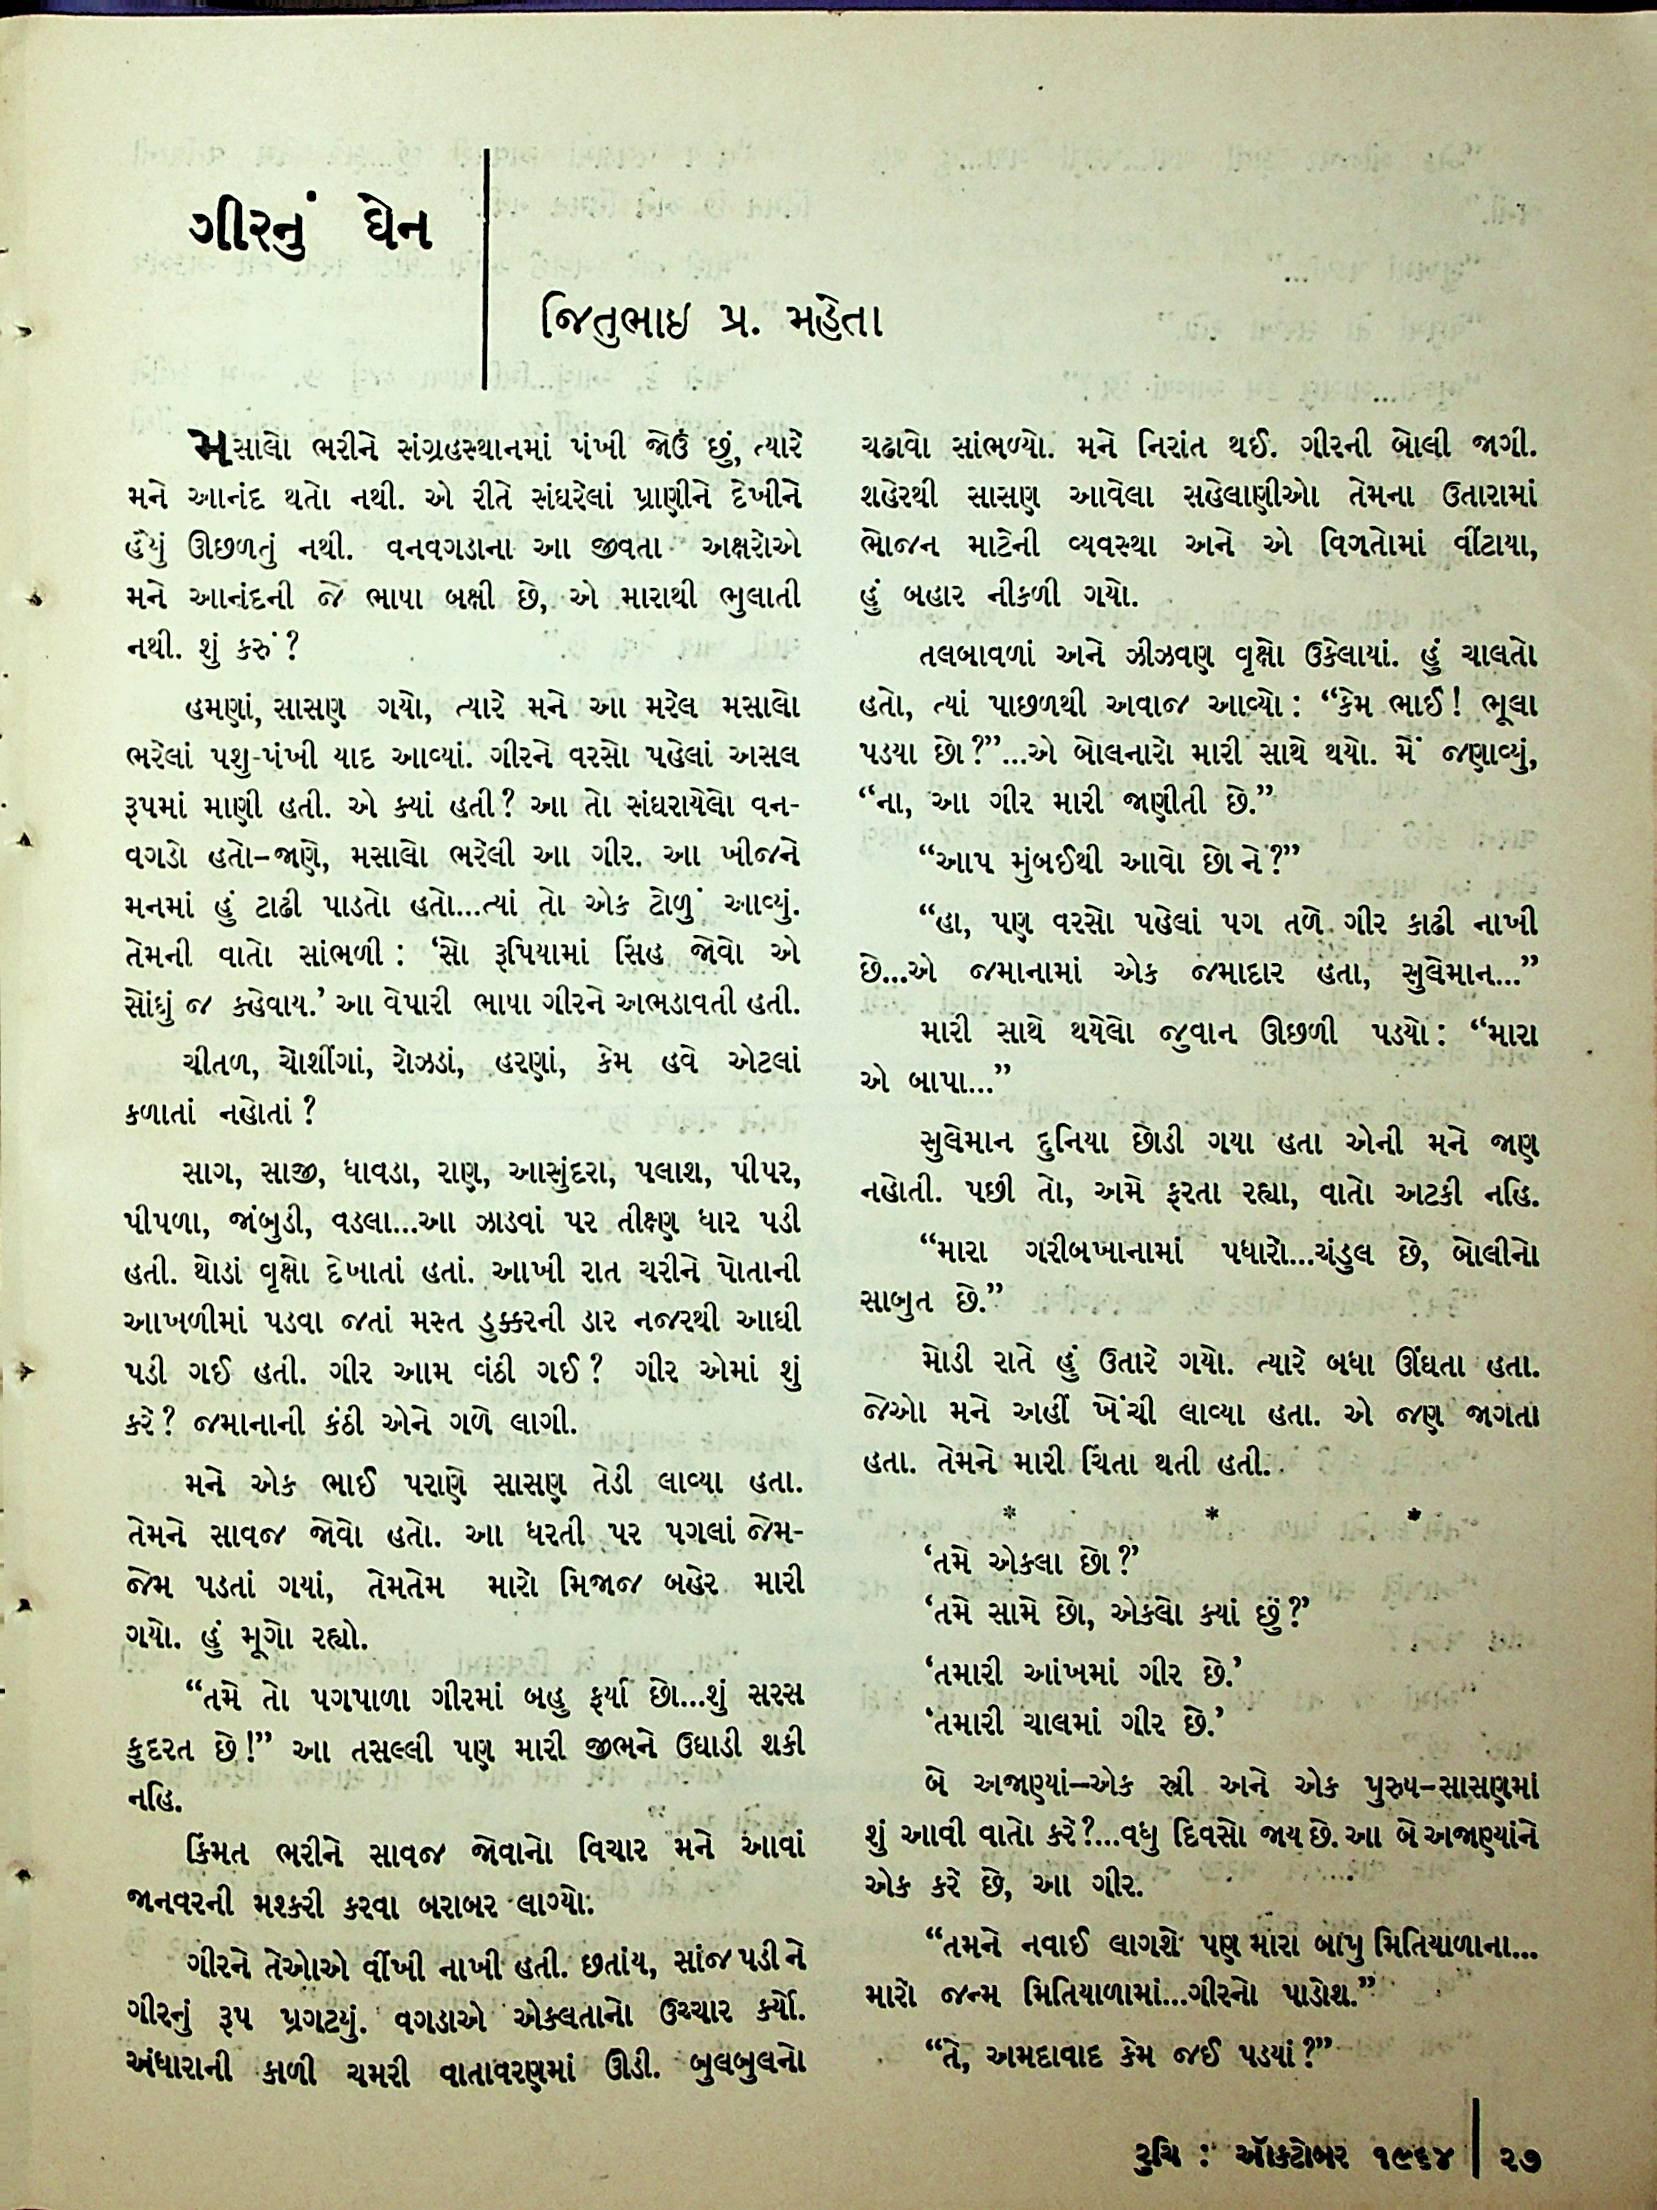 ગીરનું ઘેન
જિતુભાઇ પ્ર. મહેતા
મસાલો ભરીને સંગ્રહસ્થાનમાં પંખી જોઉં છું, ત્યારે
મને આનંદ થતો નથી. એ રીતે સંઘરેલાં પ્રાણીને દેખીને
હૈયું ઊછળતું નથી. વનવગડાના આ જીવતા અક્ષરોએ
મને આનંદની જે ભાષા બક્ષી છે, એ મારાથી ભુલાતી
નથી. શું કરું ?
હમણાં, સાસણ ગયો, ત્યારે મને આ મરેલ મસાલો
ભરેલાં પશુ-પંખી યાદ આવ્યાં. ગીરને વરસો પહેલાં અસલ
રૂપમાં માણી હતી. એ ક્યાં હતી ? આ તો સંઘરાયેલો વન-
વગડો હતો–જાણે, મસાલો ભરેલી આ ગીર. આ ખીજને
મનમાં હું ટાઢી પાડતો હતો...ત્યાં તો એક ટોળું આવ્યું.
તેમની વાતો સાંભળી : ‘સો રૂપિયામાં સિંહ જોવો એ
સોંઘું જ કહેવાય.’ આ વેપારી ભાષા ગીરને અભડાવતી હતી.
ચીતળ, ચોશીંગાં, રોઝડાં, હરણાં, કેમ હવે એટલાં
કળાતાં નહોતાં ?
સાગ, સાજી, ધાવડા, રાણ, આસુંદરા, પલાશ, પીપર,
પીપળા, જાંબુડી, વડલા...આ ઝાડવાં પર તીક્ષ્ણ ધાર પડી
હતી. થોડાં વૃક્ષો દેખાતાં હતાં. આખી રાત ચરીને પોતાની
આખળીમાં પડવા જતાં મસ્ત ડુક્કરની ડાર નજરથી આઘી
પડી ગઈ હતી. ગીર આમ વંઠી ગઈ ? ગીર એમાં શું
કરે ? જમાનાની કંઠી એને ગળે લાગી.
મને એક ભાઈ પરાણે સાસણ તેડી લાવ્યા હતા.
તેમને સાવજ જોવો હતો. આ ધરતી પર પગલાં જેમ-
જેમ પડતાં ગયાં, તેમતેમ મારો મિજાજ બહેર મારી
ગયો. હું મૂગો રહ્યો.
“તમે તો પગપાળા ગીરમાં બહુ ફર્યા છો...શું સરસ
કુદરત છે !” આ તસલ્લી પણ મારી જીભને ઉઘાડી શકી
નહિ.
કિંમત ભરીને સાવજ જોવાનો વિચાર મને આવાં
જાનવરની મશ્કરી કરવા બરાબર લાગ્યો.
ગીરને તેઓએ વીંખી નાખી હતી. છતાંય, સાંજ પડી ને
ગીરનું રૂપ પ્રગટયું. વગડાએ એકલતાનો ઉચ્ચાર કર્યો.
અંધારાની કાળી ચમરી વાતાવરણમાં ઊડી. બુલબુલનો
ચઢાવો સાંભળ્યો. મને નિરાંત થઈ. ગીરની બોલી જાગી.
શહેરથી સાસણ આવેલા સહેલાણીઓ તેમના ઉતારામાં
ભોજન માટેની વ્યવસ્થા અને એ વિગતોમાં વીંટાયા,
હું બહાર નીકળી ગયો.
તલબાવળાં અને ઝીઝવણ વૃક્ષો ઉકેલાયાં. હું ચાલતો
હતો, ત્યાં પાછળથી અવાજ આવ્યો : “કેમ ભાઈ ! ભૂલા
પડયા છો ?”...એ બોલનારો મારી સાથે થયો. મેં જણાવ્યું,
“ના, આ ગીર મારી જાણીતી છે.”
“આપ મુંબઈથી આવો છો ને ?”
“હા, પણ વરસો પહેલાં પગ તળે ગીર કાઢી નાખી
છે...એ જમાનામાં એક જમાદાર હતા, સુલેમાન...”
મારી સાથે થયેલો જુવાન ઊછળી પડયો : “મારા
એ બાપા...”
સુલેમાન દુનિયા છોડી ગયા હતા એની મને જાણ
નહોતી. પછી તો, અમે ફરતા રહ્યા, વાતો અટકી નહિ.
“મારા ગરીબખાનામાં પધારો...ચંડુલ છે, બોલીનો
સાબુત છે.”
મોડી રાતે હું ઉતારે ગયો. ત્યારે બધા ઊંઘતા હતા.
જેઓ મને અહીં ખેંચી લાવ્યા હતા. એ જણ જાગતા
હતા. તેમને મારી ચિંતા થતી હતી.
* * *
‘તમે એકલા છો ?’
‘તમે સામે છો, એકલો ક્યાં છું ?’
‘તમારી આંખમાં ગીર છે.’
‘તમારી ચાલમાં ગીર છે.’
બે અજાણ્યાં—એક સ્ત્રી અને એક પુરુષ—સાસણમાં
શું આવી વાતો કરે ?...વધુ દિવસો જાય છે. આ બે અજાણ્યાંને
એક કરે છે, આ ગીર.
“તમને નવાઈ લાગશે પણ મારા બાપુ મિતિયાળાના...
મારો જન્મ મિતિયાળામાં...ગીરનો પાડોશ.”
“તે, અમદાવાદ કેમ જઈ પડયાં ?”
રુચિ : ઑક્ટોબર ૧૯૬૪ | ૨૭